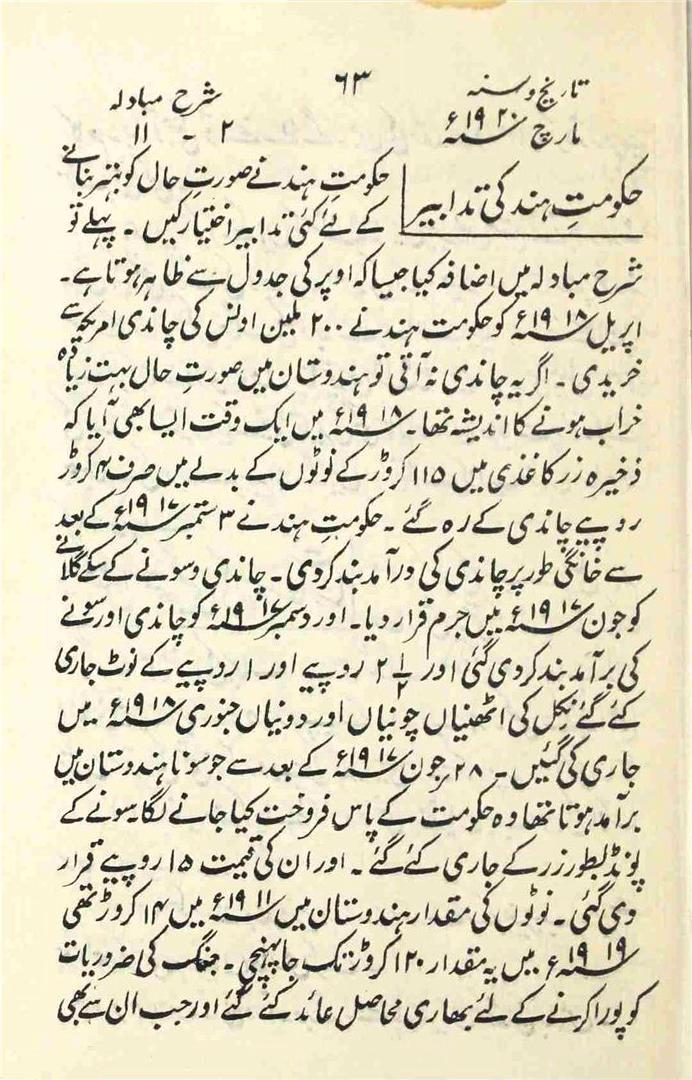 ۶۳
تاریخ و سنہ شرح مبادلہ
مارچ ۱۹۲۰ء ۲ - ۱۱
حکومتِ ہند کی تدابیر
حکومتِ ہند نے صورتِ حال کو بہتر بنانے
کے لئے کئی تدابیر اختیار کیں۔ پہلے تو
شرح مبادلہ میں اضافہ کیا جیسا کہ اوپر کی جدول سے ظاہر ہوتا ہے۔
اپریل ۱۹۱۸ء کو حکومت ہند نے ۲۰۰ ملین اونس کی چاندی امریکہ سے
خریدی۔ اگر یہ چاندی نہ آتی تو ہندوستان میں صورتِ حال بہت زیادہ
خراب ہونے کا اندیشہ تھا۔ ۱۹۱۸ء میں ایک وقت ایسا بھی آیا کہ
ذخیرہ زر کاغذی میں ۱۱۵ کروڑ کے نوٹوں کے بدلے میں صرف ۴ کروڑ
روپیے چاندی کے رہ گئے۔ حکومتِ ہند نے ۳ ستمبر ۱۹۱۷ء کے بعد
سے خانگی طور پر چاندی کی درآمد بند کردی۔ چاندی و سونے کے سکے گلانے
کو جون ۱۹۱۷ء میں جرم قرار دیا۔ اور دسمبر ۱۹۱۷ء کو چاندی اور سونے
کی برآمد بند کردی گئی اور ۲ ۱/۲ روپیے اور ۱ روپیے کے نوٹ جاری
کئے گئے نکل کی اٹھنیاں چونیاں اور دونیاں جنوری ۱۹۱۸ء میں
جاری کی گئیں۔ ۲۸ جون ۱۹۱۷ء کے بعد سے جو سونا ہندوستان میں
برآمد ہوتا تھا وہ حکومت کے پاس فروخت کیا جانے لگا سونے کے
پونڈ بطور زر کے جاری کئے گئے۔ اور ان کی قیمت ۱۵ روپیے قرار
دی گئی۔ نوٹوں کی مقدار ہندوستان میں ۱۹۱۱ء میں ۱۴ کروڑ تھی
۱۹۱۹ء میں یہ مقدار ۱۲۰ کروڑ تک جا پہنچی۔ جنگ کی ضروریات
کو پورا کرنے کے لئے بھاری محاصل عائد کئے گئے اور جب ان سے بھی